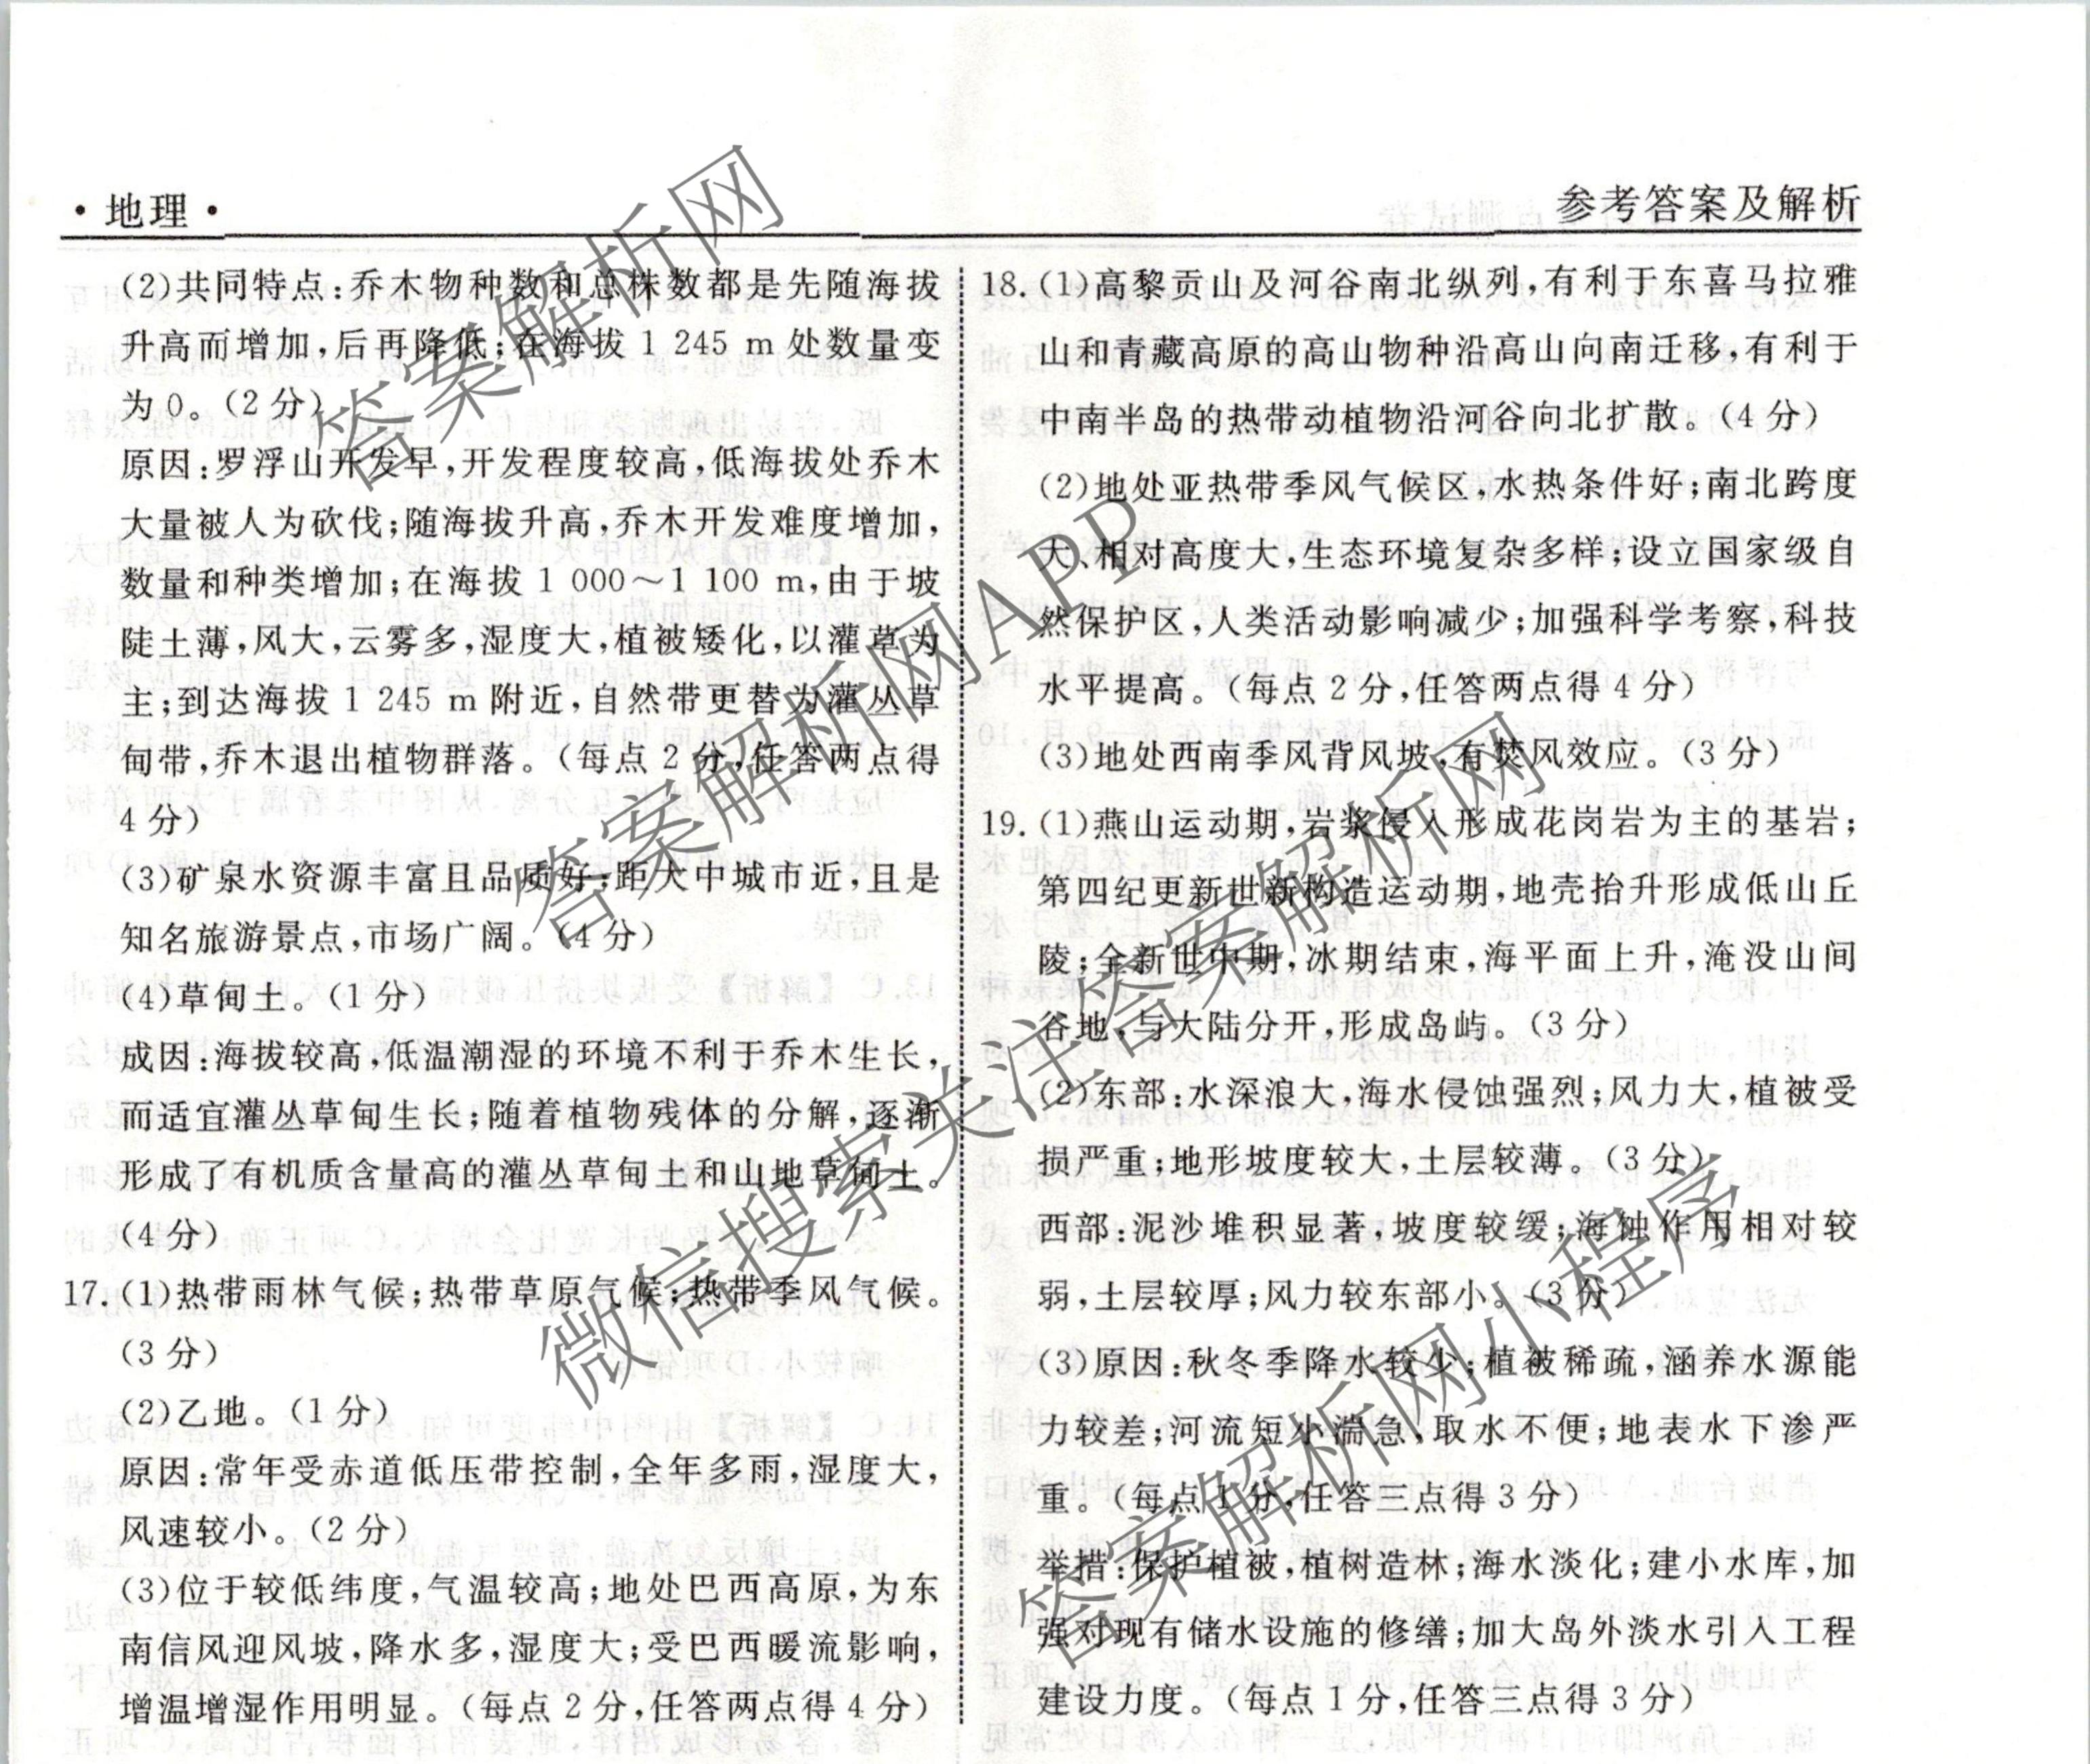 ·地理·
参考答案及解析
(2)共同特点:乔木物种数和总株数都是先随海拔
升高而增加,后再降低;在海拔1 245 m处数量变
为0。(2分)
原因:罗浮山开发早,开发程度较高,低海拔处乔木
大量被人为砍伐;随海拔升高,乔木开发难度增加,
数量和种类增加;在海拔1 000~1 100 m,由于坡
陡土薄,风大,云雾多,湿度大,植被矮化,以灌草为
主;到达海拔1 245 m附近,自然带更替为灌丛草
甸带,乔木退出植物群落。(每点2分,任答两点得
4分)
(3)矿泉水资源丰富且品质好;距大中城市近,且是
知名旅游景点,市场广阔。(4分)
(4)草甸土。(1分)
成因:海拔较高,低温潮湿的环境不利于乔木生长,
而适宜灌丛草甸生长;随着植物残体的分解,逐渐
形成了有机质含量高的灌丛草甸土和山地草甸土。
(4分)
17.(1)热带雨林气候;热带草原气候;热带季风气候。
(3分)
(2)乙地。(1分)
原因:常年受赤道低压带控制,全年多雨,湿度大,
风速较小。(2分)
(3)位于较低纬度,气温较高;地处巴西高原,为东
南信风迎风坡,降水多,湿度大;受巴西暖流影响,
增温增湿作用明显。(每点2分,任答两点得4分)
18.(1)高黎贡山及河谷南北纵列,有利于东喜马拉雅
山和青藏高原的高山物种沿高山向南迁移,有利于
中南半岛的热带动植物沿河谷向北扩散。(4分)
(2)地处亚热带季风气候区,水热条件好;南北跨度
大、相对高度大,生态环境复杂多样;设立国家级自
然保护区,人类活动影响减少;加强科学考察,科技
水平提高。(每点2分,任答两点得4分)
(3)地处西南季风背风坡,有焚风效应。(3分)
19.(1)燕山运动期,岩浆侵入形成花岗岩为主的基岩;
第四纪更新世新构造运动期,地壳抬升形成低山丘
陵;全新世中期,冰期结束,海平面上升,淹没山间
谷地,与大陆分开,形成岛屿。(3分)
(2)东部:水深浪大,海水侵蚀强烈;风力大,植被受
损严重;地形坡度较大,土层较薄。(3分)
西部:泥沙堆积显著,坡度较缓;海蚀作用相对较
弱,土层较厚;风力较东部小。(3分)
(3)原因:秋冬季降水较少;植被稀疏,涵养水源能
力较差;河流短小湍急,取水不便;地表水下渗严
重。(每点1分,任答三点得3分)
举措:保护植被,植树造林;海水淡化;建小水库,加
强对现有储水设施的修缮;加大岛外淡水引入工程
建设力度。(每点1分,任答三点得3分)
答案解析网
答案解析网APP
微信搜索关注答案解析网
答案解析网小程序